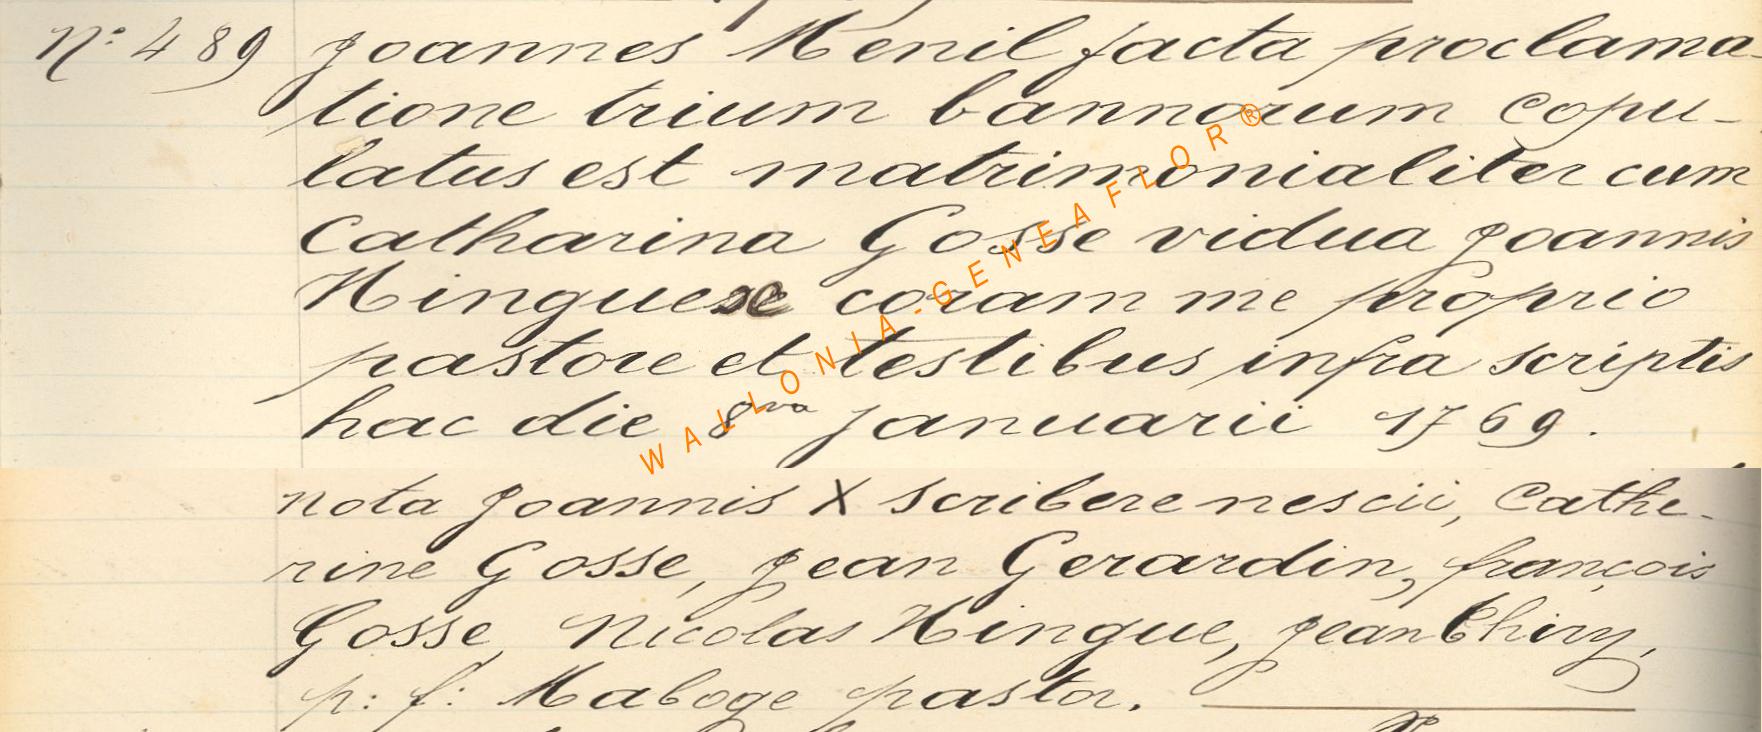 N° 489 Joannes Menil facta proclama-
tione trium bannorum copu-
latus est matrimonialiter cum
Catharina Gosse vidua Joannis
Hinguese coram me proprio
pastore et testibus infra scriptis
hac die 8va Januarii 1769.
nota Joannis X scribere nescii, Cathe-
rine Gosse, Jean Gerardin, françois
Gosse, Nicolas Hingue, Jean Thiry,
p: f: Maboge pastor.
WALLONIA-GENEAFLOR®